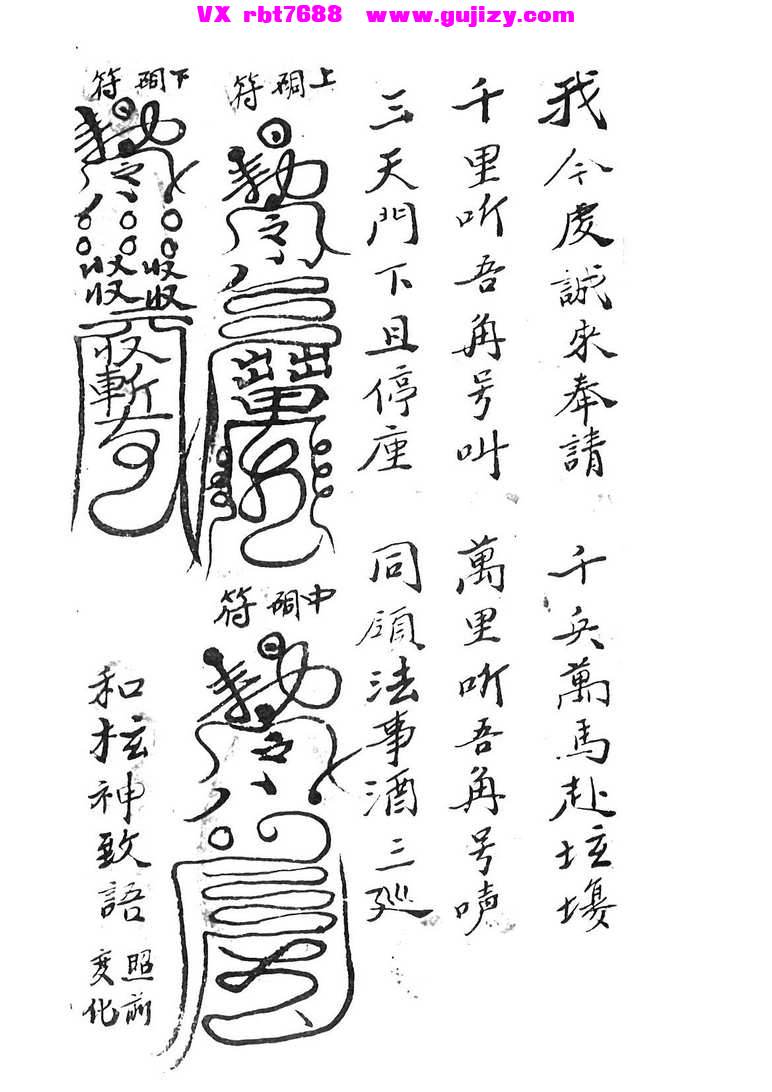 VX rbt7688 www.gujizy.com
我今虔誠來奉請 千兵萬馬赴坛塲
千里听吾角号叫 萬里听吾角号
三天門下且停座 同領法事酒三巡
上硐符
敕令
中硐符
敕令
下硐符
敕令
收收
收收
收
斬
和坛神致語 照前變化